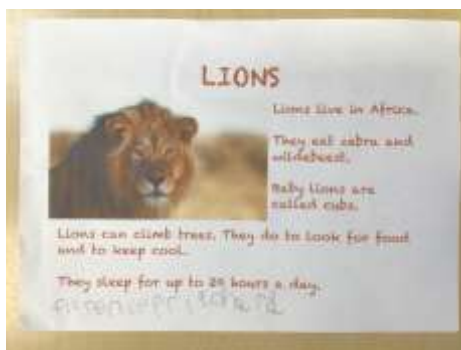 LIONS
Lions live in Africa.
They eat zebra and
wildebeest.
Baby lions are
called cubs.
Lions can climb trees. They do to look for food
and to keep cool.
They sleep for up to 20 hours a day.